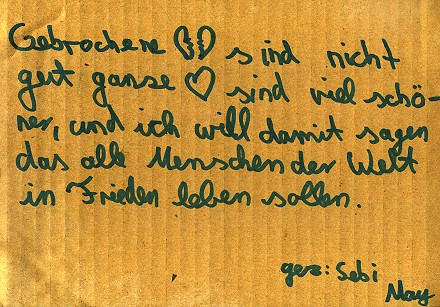 Gebrochene 💔 sind nicht
gut ganse ♡ sind viel schö-
ner, und ich will damit sagen
das alle Menschen der Welt
in Frieden leben sollen.
gez: Sebi
May